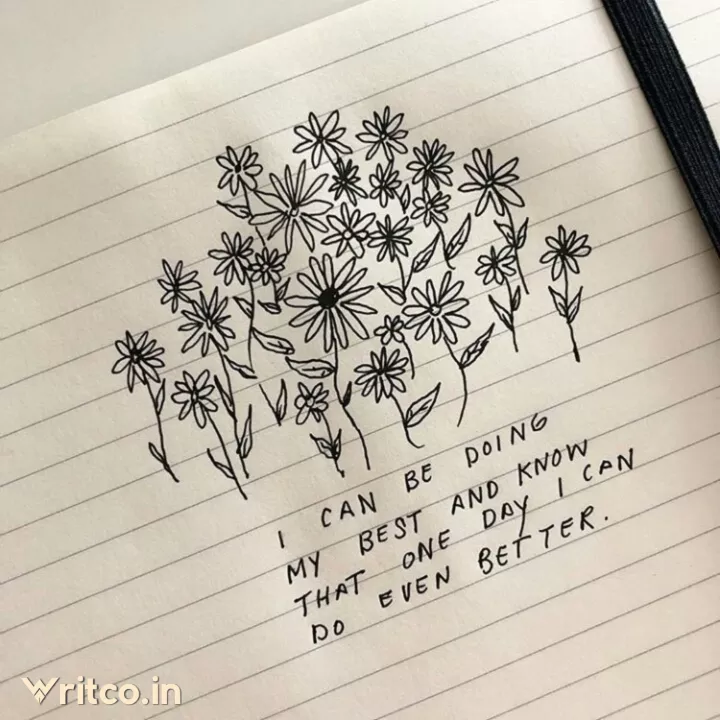 I CAN BE DOING
MY BEST AND KNOW
THAT ONE DAY I CAN
DO EVEN BETTER.
Writco.in